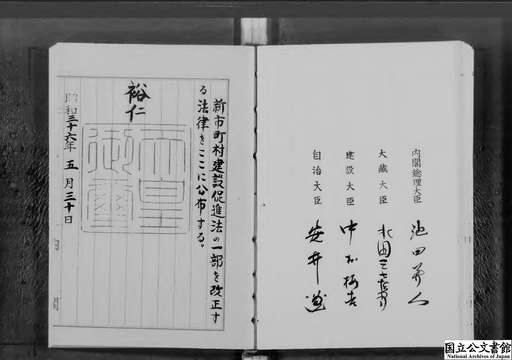 内閣総理大臣 池田勇人
大蔵大臣
建設大臣 中村梅吉
自治大臣 安井謙
新市町村建設促進法の一部を改正す
る法律をここに公布する。
裕仁
天皇
御璽
昭和三十六年五月三十日
国立公文書館
National Archives of Japan